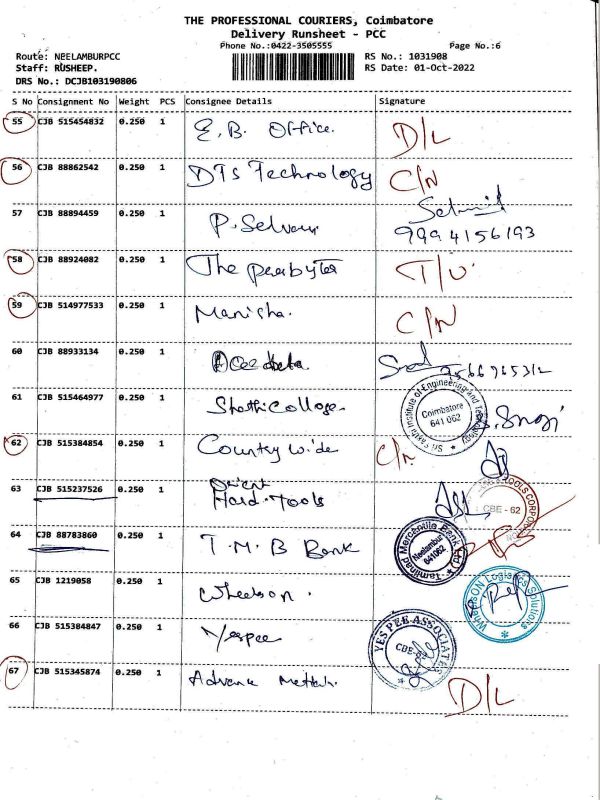 THE PROFESSIONAL COURIERS, Coimbatore
Delivery Runsheet - PCC
Phone No.:0422-3505555 Page No.:6
Route: NEELAMBURPCC RS No.: 1031908
Staff: RUSHEEP. RS Date: 01-Oct-2022
DRS No.: DCJB103190806
S No Consignment No Weight PCS Consignee Details Signature
55 CJB 515454832 0.250 1 E.B. Office. D/L
56 CJB 88862542 0.250 1 DTS Technology C/N
57 CJB 88894459 0.250 1 P. Selvam
9994156193
58 CJB 88924082 0.250 1 The
59 CJB 514977533 0.250 1 Manisha. C/N
60 CJB 88933134 0.250 1
61 CJB 515464977 0.250 1 Sri Shakthi Institute of Engineering and Technology
Coimbatore
641 062
62 CJB 515384854 0.250 1 Country wide C/N
63 CJB 515237526 0.250 1 Orient
Hard. Tools CBE - 62
64 CJB 88783860 0.250 1 T.M.B Bank Tamilnad Mercantile Bank Ltd
Neelambur
641062
65 CJB 1219058 0.250 1 Wheelson. WheelsON Logistics Solutions
66 CJB 515384847 0.250 1 Yespee YES PEE ASSOCIATES
67 CJB 515345874 0.250 1 D/L